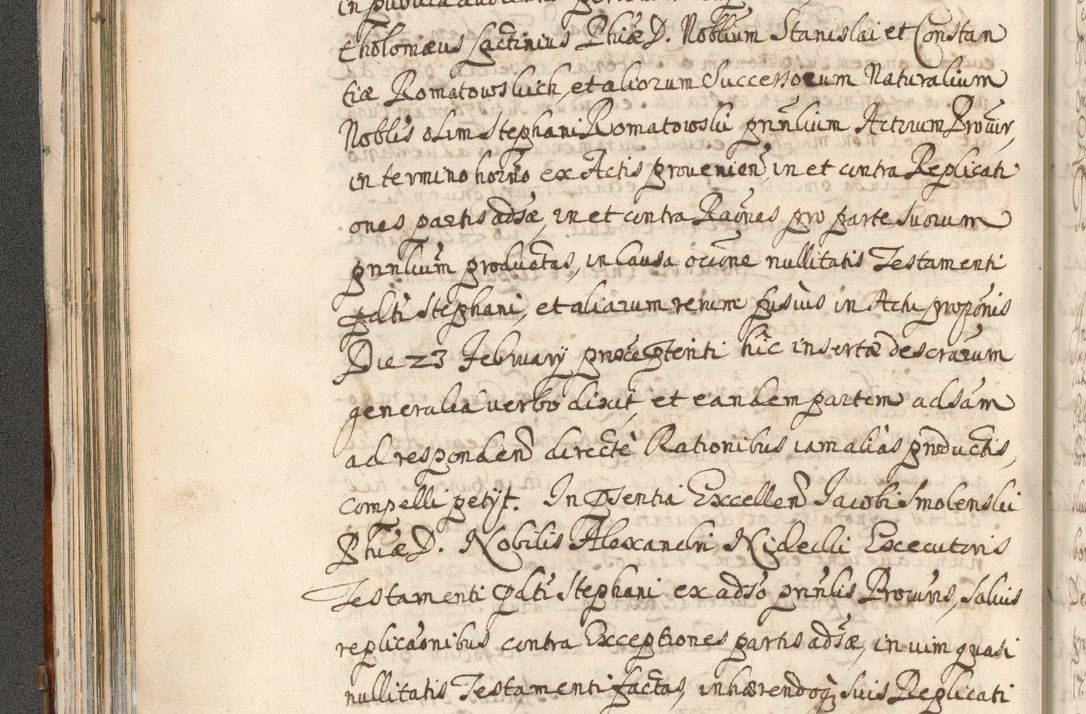 in publica
tholomæus Lactinius Phiæ D. Nobliũm Stanislai et Constan
tiæ Romatowskich, et aliorum Successorum Naturalium
Noblis olim Stephani Romatowski gñnlium Actorum Procur,
in termino horño ex Actis prouenień, in et contra Replicati
ones partis adsæ, in et contra Raões pro parte suorum
gñnlium productas, in Causa ocione nullitatis Testamenti
pdti Stephani, et aliarum rerum fusius in Actu proponis
Die 23 February præsceptenti hic insertæ descrarum
generalia verbo dixit, et eandem partem adsam
ad respondend directe Rationibus iam aliàs productis,
compelli petijt. In Psentia Excellen Jacobi Smolenski
Phiæ D. Nobilis Alexandri Nideclii Executoris
Testamenti Pdti Stephani ex adso gñnlis Procuris, saluis
replicaonibus contra Exceptiones partis adsæ, in uim quasi
nullitatis Testamenti factas, inhærendoq suis Replicati